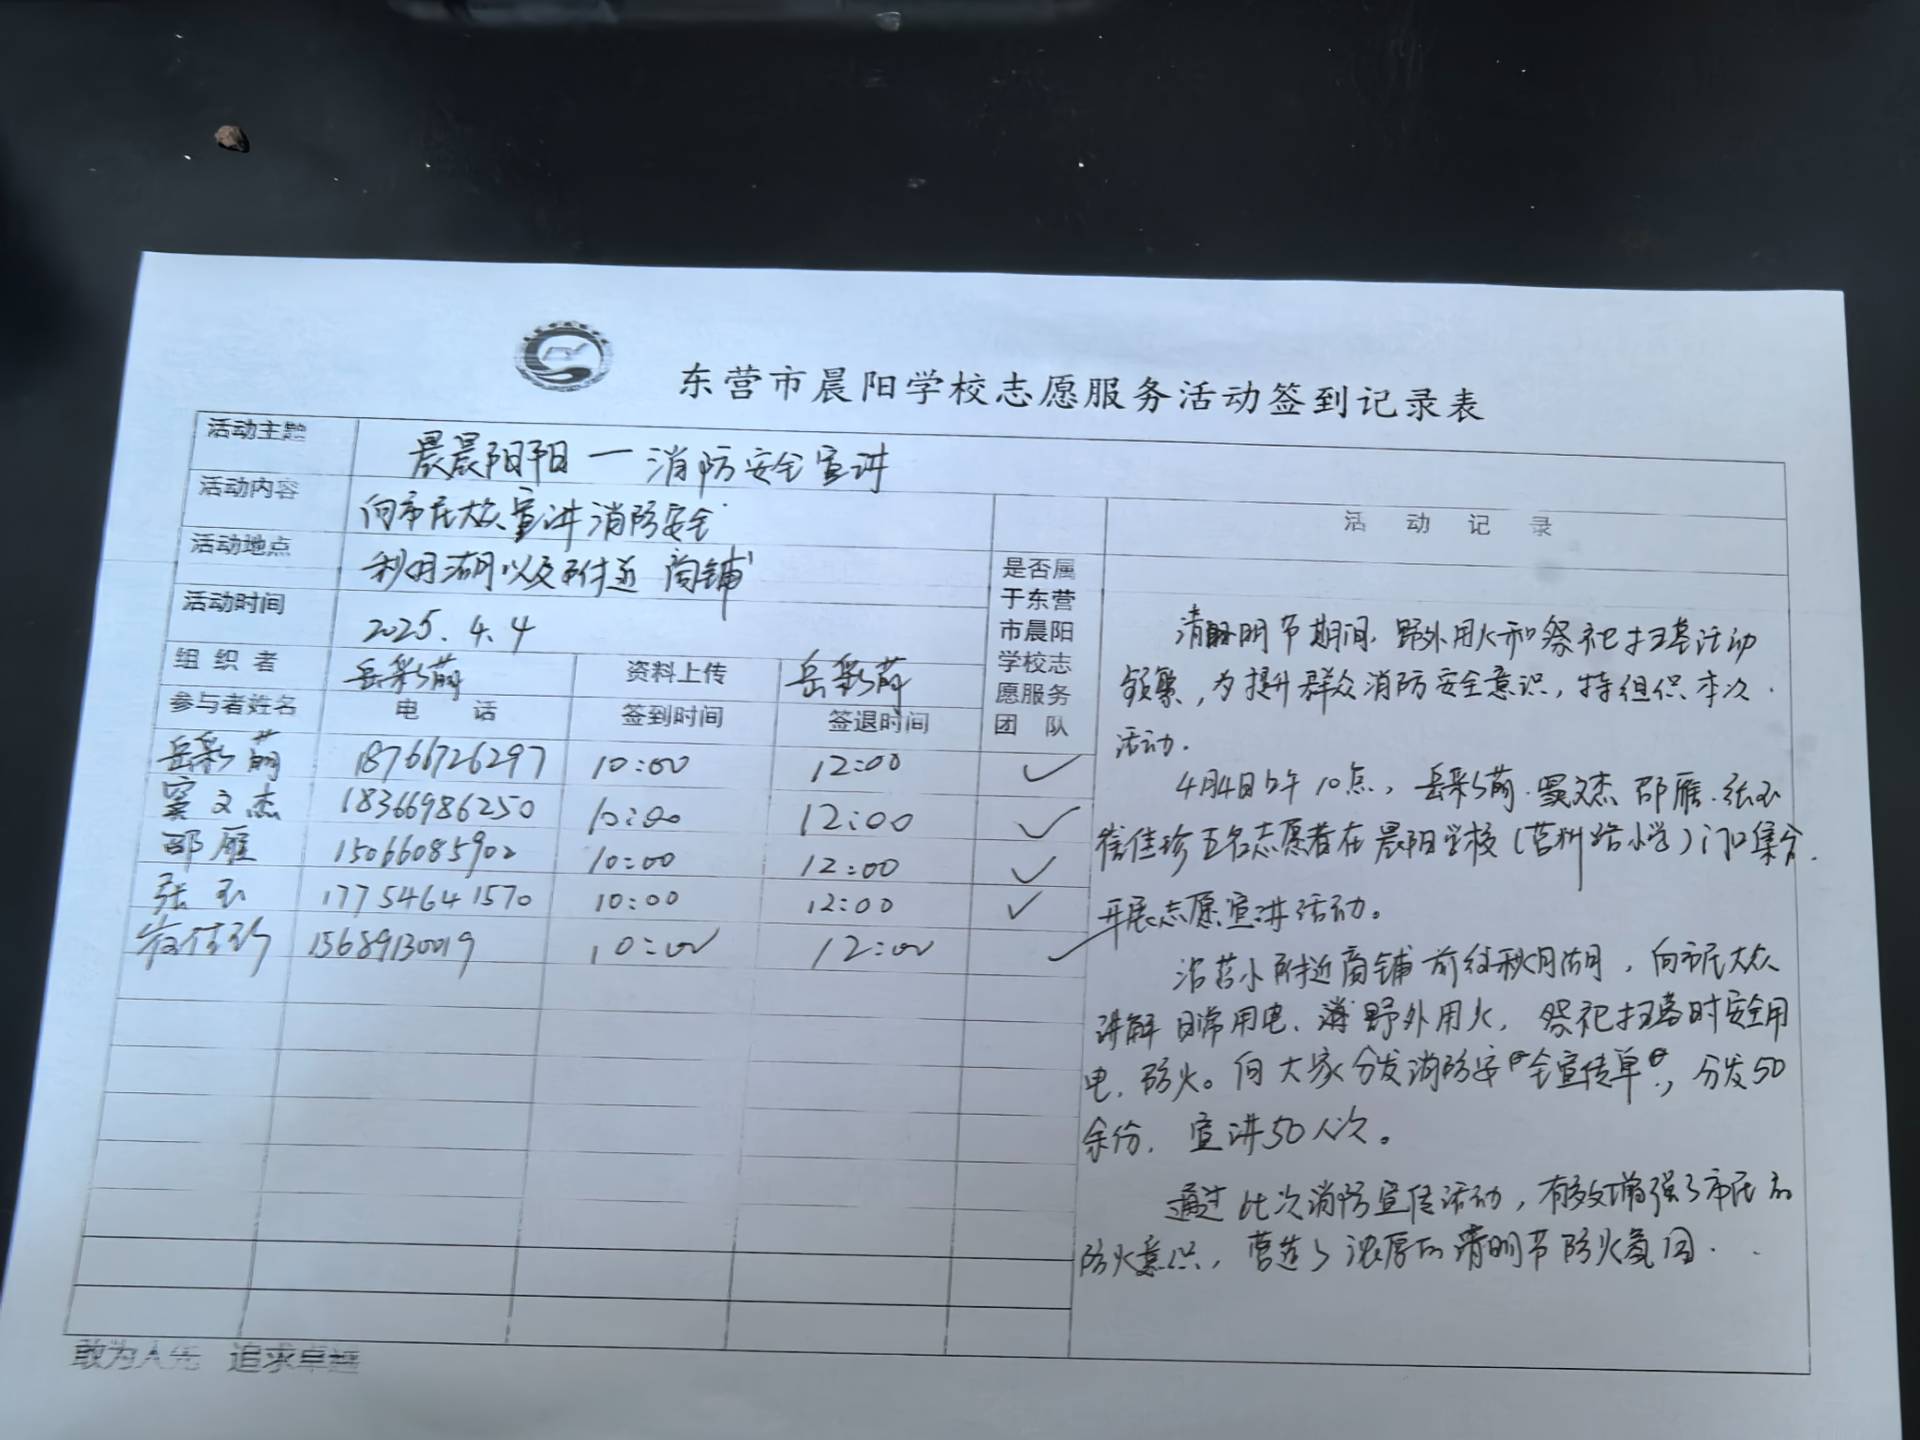 东营市晨阳学校志愿服务活动签到记录表
活动主题 晨晨阳阳一消防安全宣讲
活动内容 向市民大众宣讲消防安全
活动地点 秋月湖以及附近商铺
活动时间 2025.4.4
组织者 岳彩萌 资料上传 岳彩萌
是否属于东营市晨阳学校志愿服务团队
参与者姓名 电话 签到时间 签退时间
岳彩萌 18766726297 10:00 12:00 ✓
窦文杰 18366986250 10:00 12:00 ✓
邵雁 15066085902 10:00 12:00 ✓
张玉 17754641570 10:00 12:00 ✓
崔佳珍 15689130019 10:00 12:00 ✓
活动记录
清明节期间,野外用火和祭祀扫墓活动
频繁,为提升群众消防安全意识,特组织本次
活动.
4月4日上午10点,岳彩萌.窦文杰 邵雁.张玉
崔佳珍五名志愿者在晨阳学校(营州路小学)门口集合.
开展志愿宣讲活动。
沿营小附近商铺前往秋月湖,向市民大众
讲解日常用电、野外用火,祭祀扫墓时安全用
电,防火。向大家分发消防安全宣传单,分发50
余份,宣讲50人次。
通过此次消防宣传活动,有效增强了市民的
防火意识,营造了浓厚的清明节防火氛围.
敢为人先 追求卓越